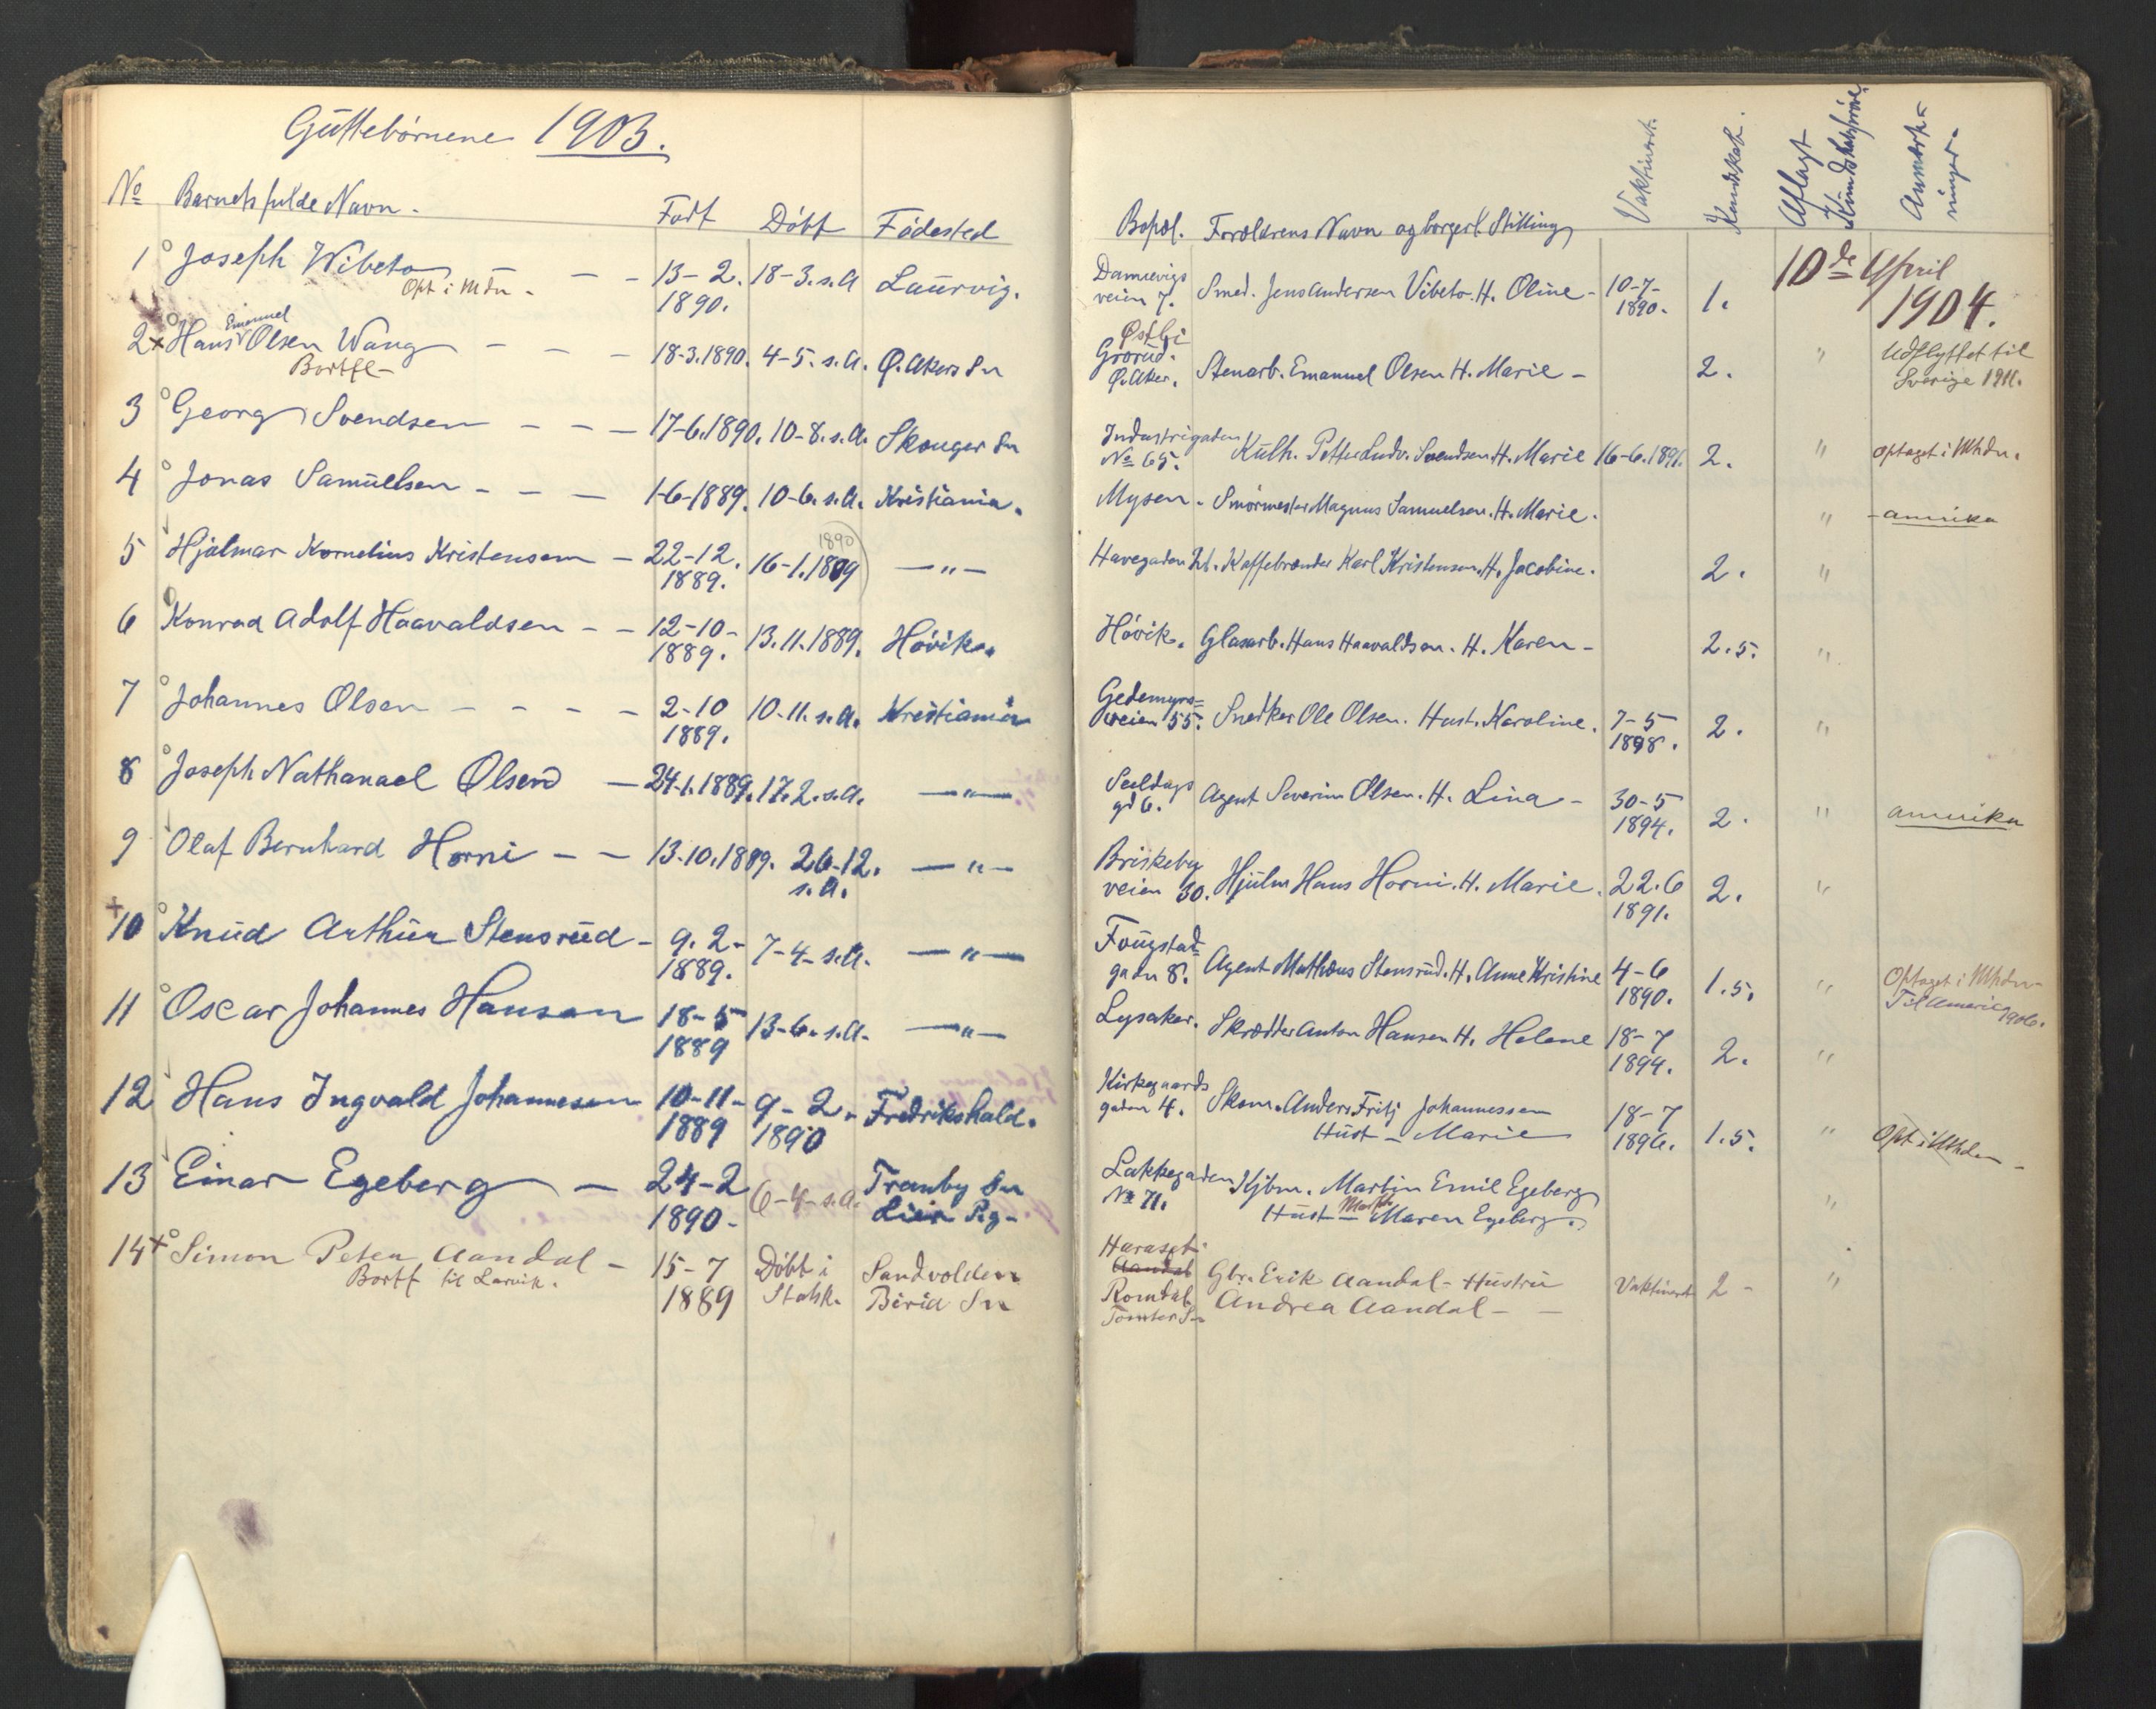 Guttebørnene 1903.
No Barnets fulde Navn. Født Døbt Fødested
1 Joseph Wibeto 13-2. 18-3. s.A Laurvig.
Opt i Mdn. 1890.
Emanuel
2 x Hans Olsen Wang 18-3.1890. 4-5. s.A. Ø. Akers Sn
Bortfl-
3 Georg Svendsen 17-6.1890. 10-8. s.A. Skouger Sn
4 Jonas Samuelsen 1-6-1889. 10-6. s.A. Kristiania.
1890
5 Hjalmar Kornelius Kristensen 22-12. 16-1.1889 -"-
1889.
6 Konrad Adolf Haavaldsen 12-10- 13.11.1889. Høvik.
1889.
7 Johannes Olsen 2-10 10-11. s.A. Kristiania
1889.
8 Joseph Nathanael Olsen 24-1.1889. 17.2. s.A. -"-
9 Olaf Bernhard Horni 13.10.1889. 26-12. -"-
s.A.
+
10 Knud Arthur Stensrud 9.2- 7-4- s.A. -"-
1889.
11 Oscar Johannes Hansen 18-5 13-6. s.A. -"-
1889
12 Hans Ingvald Johannesen 10-11- 9-2- Fredrikshald.
1889 1890
13 Einar Egeberg 24-2 6-4- s.A. Tranby Sn
1890- Lier Pg-
14 + Simon Peter Aandal 15-7 Døbt i Sandvolden
Bortf til Larvik. 1889 Stohk. Birid Sn
Bopæl. Forældrens Navn og borgerl. Stilling Vaktineret. Kundskab. Aflagt Kundskabsprøve. Anmærkninger.
Damvigs 10de April
veien 7. Smed. Jens Andersen Vibeto. H. Oline- 10-7- 1. 1904.
1890.
Østbi
Grorud. Stenarb. Emanuel Olsen H. Marie- 2. " Udflyttet til
Ø. Aker. Sverige 1911.
Industrigaden Kulh. Petter Ludv. Svendsen H. Marie 16-6.1891. 2. " optaget i Mhdn.
No 65.
Mysen. Smørmester Magnus Samuelsen. H. Marie. " - amerika
Havegaden Kaffebrænder Karl Kristensen. H. Jacobine. 2. "
Høvik. Glasarb. Hans Haavaldsen. H. Karen- 2.5. "
Gedemyrs=
veien 55. Snedker Ole Olsen. Hust. Karoline. 7-5 2. "
1898.
gd 6. Agent Severin Olsen. H. Lina- 30-5 2. " amerika
1894.
Briskeby
veien 30. Hjulm Hans Horni. H. Marie. 22.6 2. "
1891.
Fougstad=
gadn 8. Agent Mathæus Stensrud. H. Anne Kristine 4-6 1.5. " Optaget i Mhdn-
1890. Til America 1906.
Lysaker. Skrædder Anton Hansen H. Helene 18-7 2. "
1894.
Kirkegaards
gaden 4. Skom. Anders Fritj Johannessen 18-7 1.5. " Opt i Mhdn-
Hust- Marie 1896.
Lakkegaden Kjbm. Martin Emil Egeberg "
No 71. Hust- Maren Egeberg.
Aandal Gbr. Erik Aandal- Hustru Vaktineret 2- "
Romdal Andrea Aandal-
Tomter Sn